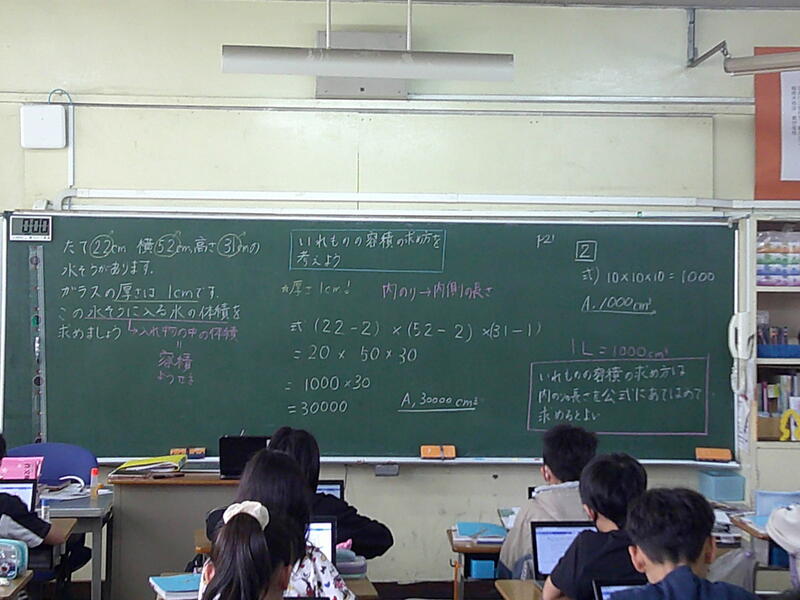 0:00
たて22cm 横52cm、高さ31cmの
水そうがあります。
ガラスの厚さは1cmです。
この水そうに入る水の体積を
求めましょう
→入れ物の中の体積
=
容積
ようせき
いれものの容積の求め方を
考えよう
☆厚さ1cm!
内のり→内側の長さ
式 (22-2)×(52-2)×(31-1)
=20×50×30
=1000×30
=30000
A, 30000cm³
P21
2
式) 10×10×10=1000
A. 1000cm³
1L=1000cm³
いれものの容積の求め方は
内のりの長さを公式にあてはめて
求めるとよい